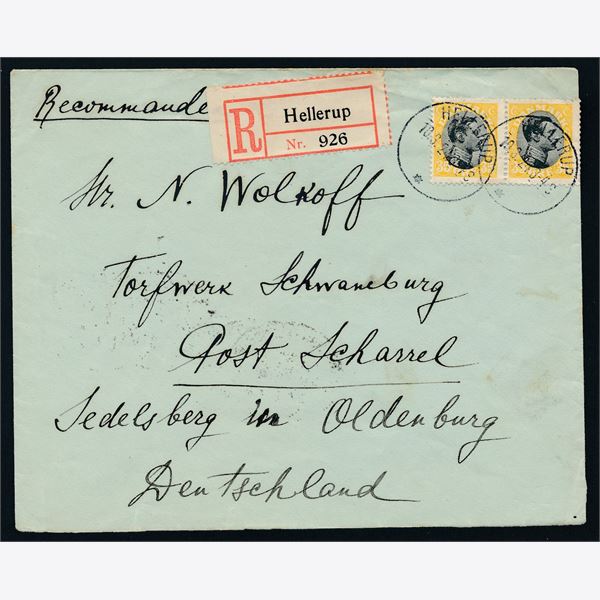 Recommande
R
Hellerup
Nr. 926
HELLERUP
Hr. N. Wolkoff
Torfwerk Schwaneburg
Post Scharrel
Sedelsberg in Oldenburg
Deutschland